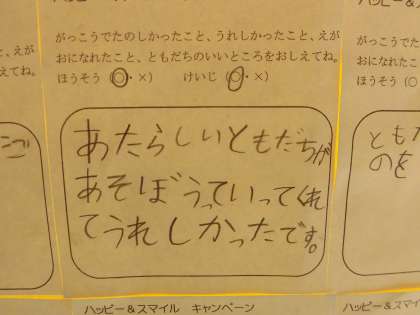 がっこうでたのしかったこと、うれしかったこと、えが
おになれたこと、ともだちのいいところをおしえてね。
ほうそう（○・×）　けいじ（○・×）
あたらしいともだちが
あそぼうっていってくれ
てうれしかったです。
ハッピー＆スマイル　キャンペーン
と、えが
えてね。
がっこうでたのし
おになれたこと、
ほうそう（○
とも
のを